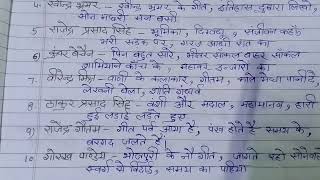 4. रवीन्द्र भ्रमर – रवीन्द्र भ्रमर के गीत, इतिहास दुबारा लिखो,
सोन मछरी मन बसी
5. राजेन्द्र प्रसाद सिंह – भूमिका, दिग्वधू, संजीवन कहाँ
भरी सड़क पर, गजर आधी रात का
6. कुंवर बेचैन – पिन बहुत सारे, भीतर साँकल बाहर साँकल
शामियाने काँच के, महावर इन्तजारों का
7. वीरेन्द्र मिश्र – वाणी के कलाकार, गीतम,
लेखनी बेला, शांति गन्धर्व
8. ठाकुर प्रसाद सिंह – वंशी और मादल, महामानव, हारी
हुई लड़ाई लड़ते हुए
9) राजेन्द्र गौतम – गीत पर्व आया है, पंख होते हैं समय के,
बरगद जलते हैं।
10. गोरख पाण्डेय – भोजपुरी के नौ गीत, जागते रहो सोनेवालों
स्वर्ग से विदाई, समय का पहिया